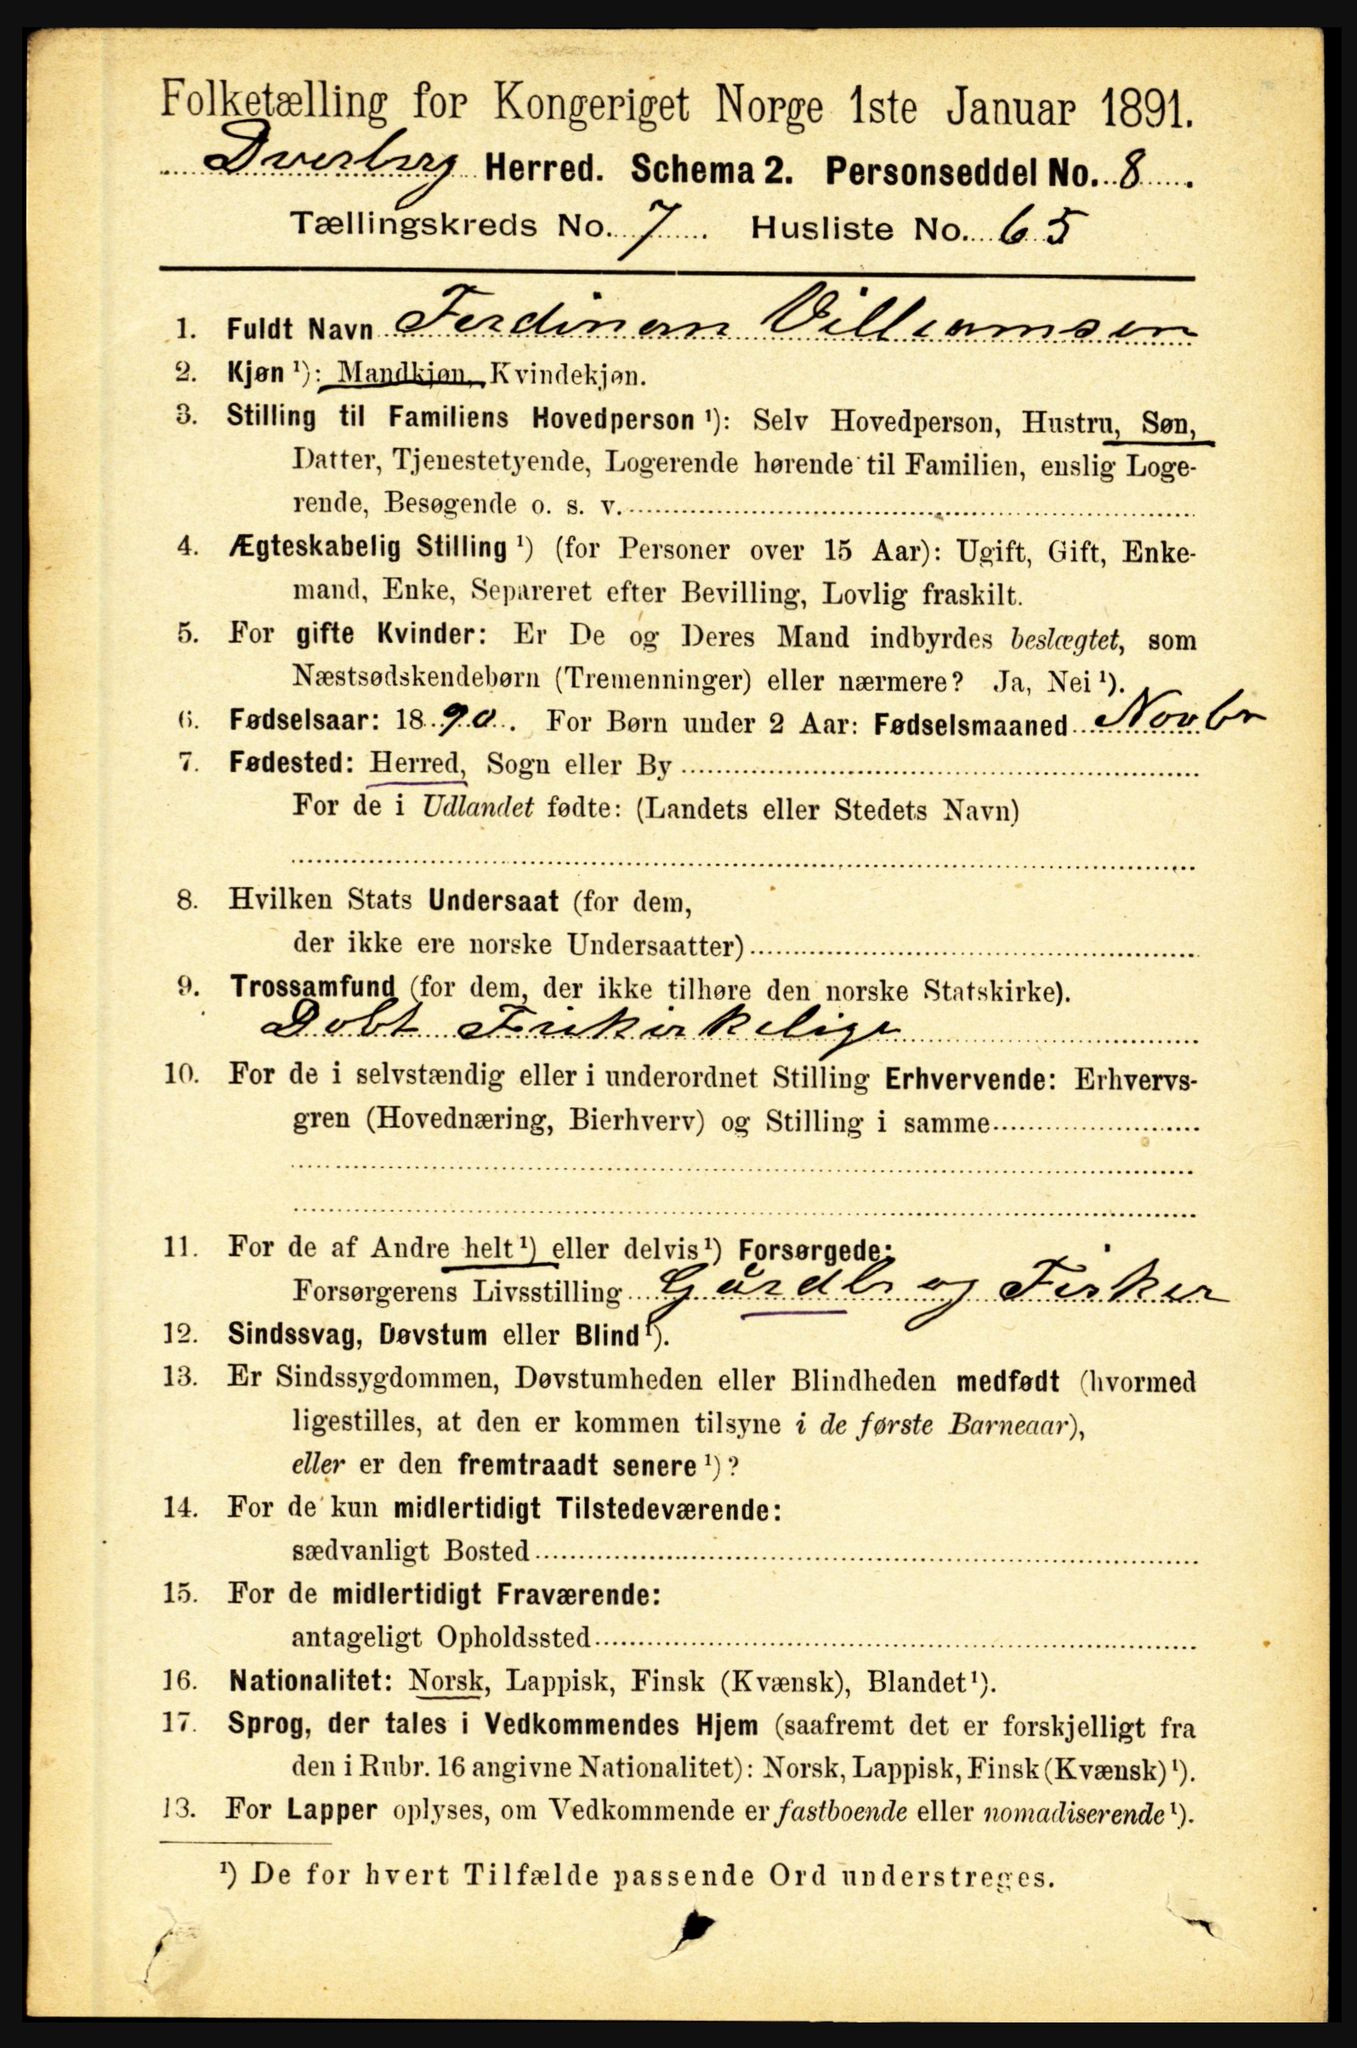 Folketælling for Kongeriget Norge 1ste Januar 1891.
Dverberg Herred. Schema 2. Personseddel No. 8
Tællingskreds No. 7 Husliste No. 65
1. Fuldt Navn Ferdinan Villiamsen
2. Kjøn ¹): Mandkjøn, Kvindekjøn.
3. Stilling til Familiens Hovedperson ¹): Selv Hovedperson, Hustru, Søn,
Datter, Tjenestetyende, Logerende hørende til Familien, enslig Loge-
rende, Besøgende o. s. v.
4. Ægteskabelig Stilling ¹) (for Personer over 15 Aar): Ugift, Gift, Enke-
mand, Enke, Separeret efter Bevilling, Lovlig fraskilt.
5. For gifte Kvinder: Er De og Deres Mand indbyrdes beslægtet, som
Næstsødskendebørn (Tremenninger) eller nærmere? Ja, Nei ¹).
6. Fødselsaar: 1890. For Børn under 2 Aar: Fødselsmaaned Novbr
7. Fødested: Herred, Sogn eller By
For de i Udlandet fødte: (Landets eller Stedets Navn)
8. Hvilken Stats Undersaat (for dem,
der ikke ere norske Undersaatter)
9. Trossamfund (for dem, der ikke tilhøre den norske Statskirke).
Døbt Frikirkelige
10. For de i selvstændig eller i underordnet Stilling Erhvervende: Erhvervs-
gren (Hovednæring, Bierhverv) og Stilling i samme
11. For de af Andre helt ¹) eller delvis ¹) Forsørgede:
Forsørgerens Livsstilling Gårdbr og Fisker
12. Sindssvag, Døvstum eller Blind ¹).
13. Er Sindssygdommen, Døvstumheden eller Blindheden medfødt (hvormed
ligestilles, at den er kommen tilsyne i de første Barneaar),
eller er den fremtraadt senere ¹)?
14. For de kun midlertidigt Tilstedeværende:
sædvanligt Bosted
15. For de midlertidigt Fraværende:
antageligt Opholdssted
16. Nationalitet: Norsk, Lappisk, Finsk (Kvænsk), Blandet ¹).
17. Sprog, der tales i Vedkommendes Hjem (saafremt det er forskjelligt fra
den i Rubr. 16 angivne Nationalitet): Norsk, Lappisk, Finsk (Kvænsk) ¹).
13. For Lapper oplyses, om Vedkommende er fastboende eller nomadiserende ¹).
¹) De for hvert Tilfælde passende Ord understreges.